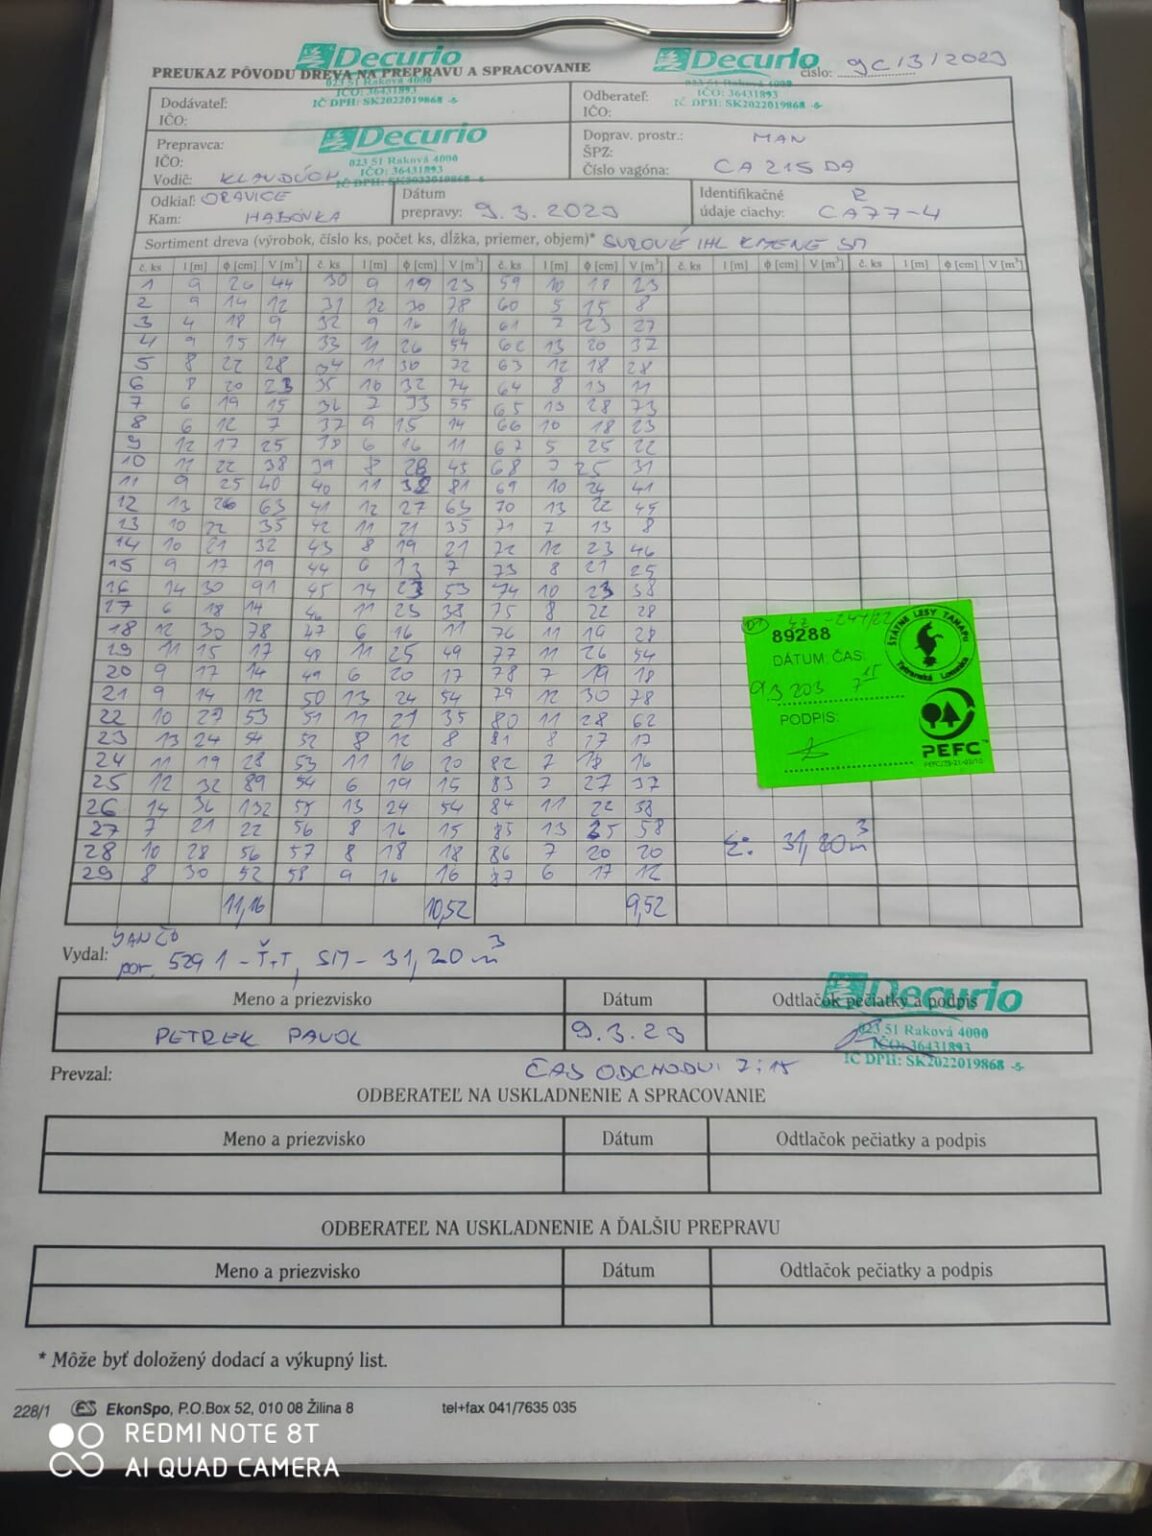 Decurio
Decurio
PREUKAZ PÔVODU DREVA NA PREPRAVU A SPRACOVANIE
číslo: 9C/3/2023
023 51 Raková 4000
IČO: 36431893
IČ DPH: SK2022019868 -5-
IČO: 36431893
IČ DPH: SK2022019868 -5-
Dodávateľ:
IČO:
Odberateľ:
IČO:
Decurio
023 51 Raková 4000
IČO: 36431893
IČ DPH: SK2022019868 -5-
Prepravca:
IČO:
Vodič: KLAUDÚCH
Doprav. prostr.: MAN
ŠPZ:
Číslo vagóna: CA 215 DA
Odkiaľ: ORAVICE
Kam: HABOVKA
Dátum
prepravy: 9.3.2023
Identifikačné R
údaje ciachy: CA77-4
Sortiment dreva (výrobok, číslo ks, počet ks, dĺžka, priemer, objem)* SUROVÉ IHL KMENE SM
č. ks l [m] ϕ [cm] V [m³] č. ks l [m] ϕ [cm] V [m³] č. ks l [m] ϕ [cm] V [m³] č. ks l [m] ϕ [cm] V [m³] č. ks l [m] ϕ [cm] V [m³]
1 9 26 44 30 9 19 23 59 10 18 23
2 9 14 12 31 12 30 78 60 5 15 8
3 4 18 9 32 9 16 16 61 7 23 27
4 9 15 14 33 11 26 54 62 13 20 37
5 8 22 28 34 11 30 72 63 12 18 28
6 8 20 23 35 10 32 74 64 8 13 11
7 6 19 15 36 7 33 55 65 13 28 73
8 6 12 7 37 9 15 14 66 10 18 23
9 12 17 25 38 6 16 11 67 5 25 22
10 11 22 38 39 8 28 45 68 7 25 31
11 9 25 40 40 11 32 81 69 10 24 41
12 13 26 63 41 12 27 63 70 13 22 45
13 10 22 35 42 11 21 35 71 7 13 8
14 10 21 32 43 8 19 21 72 12 23 46
15 9 17 19 44 6 13 7 73 8 21 25
16 14 30 91 45 14 23 53 74 10 23 38
17 6 18 14 46 11 23 38 75 8 22 28
18 12 30 78 47 6 16 11 76 11 19 28
19 11 15 17 48 11 25 49 77 11 26 54
20 9 17 14 49 6 20 17 78 7 19 18
21 9 14 12 50 13 24 54 79 12 30 78
22 10 27 53 51 11 21 35 80 11 28 62
23 13 24 54 52 8 12 8 81 8 17 17
24 11 19 28 53 11 16 20 82 7 18 16
25 12 32 89 54 6 19 15 83 7 27 37
26 14 36 132 55 13 24 54 84 11 22 38
27 7 21 22 56 8 16 15 85 13 25 58
28 10 28 56 57 8 18 18 86 7 20 20
29 8 30 52 58 9 16 16 87 6 17 12
11,16 10,52 9,52
89288
DÁTUM: ČAS:
7 15
PODPIS:
ŠTÁTNE LESY TANAPU
Tatranská Lomnica
PEFC
Σ: 31,20 m³
Vydal: JANČO
por. 529 1 - Ť.T, SM - 31,20 m³
Meno a priezvisko Dátum Odtlačok pečiatky a podpis
PETREK PAVOL 9.3.23
Decurio
023 51 Raková 4000
IČO: 36431893
IČ DPH: SK2022019868 -5-
Prevzal:
ČAS ODCHODU: 7:15
ODBERATEĽ NA USKLADNENIE A SPRACOVANIE
Meno a priezvisko Dátum Odtlačok pečiatky a podpis
ODBERATEĽ NA USKLADNENIE A ĎALŠIU PREPRAVU
Meno a priezvisko Dátum Odtlačok pečiatky a podpis
* Môže byť doložený dodací a výkupný list.
228/1 ES EkonSpo, P.O.Box 52, 010 08 Žilina 8 tel+fax 041/7635 035
REDMI NOTE 8T
AI QUAD CAMERA